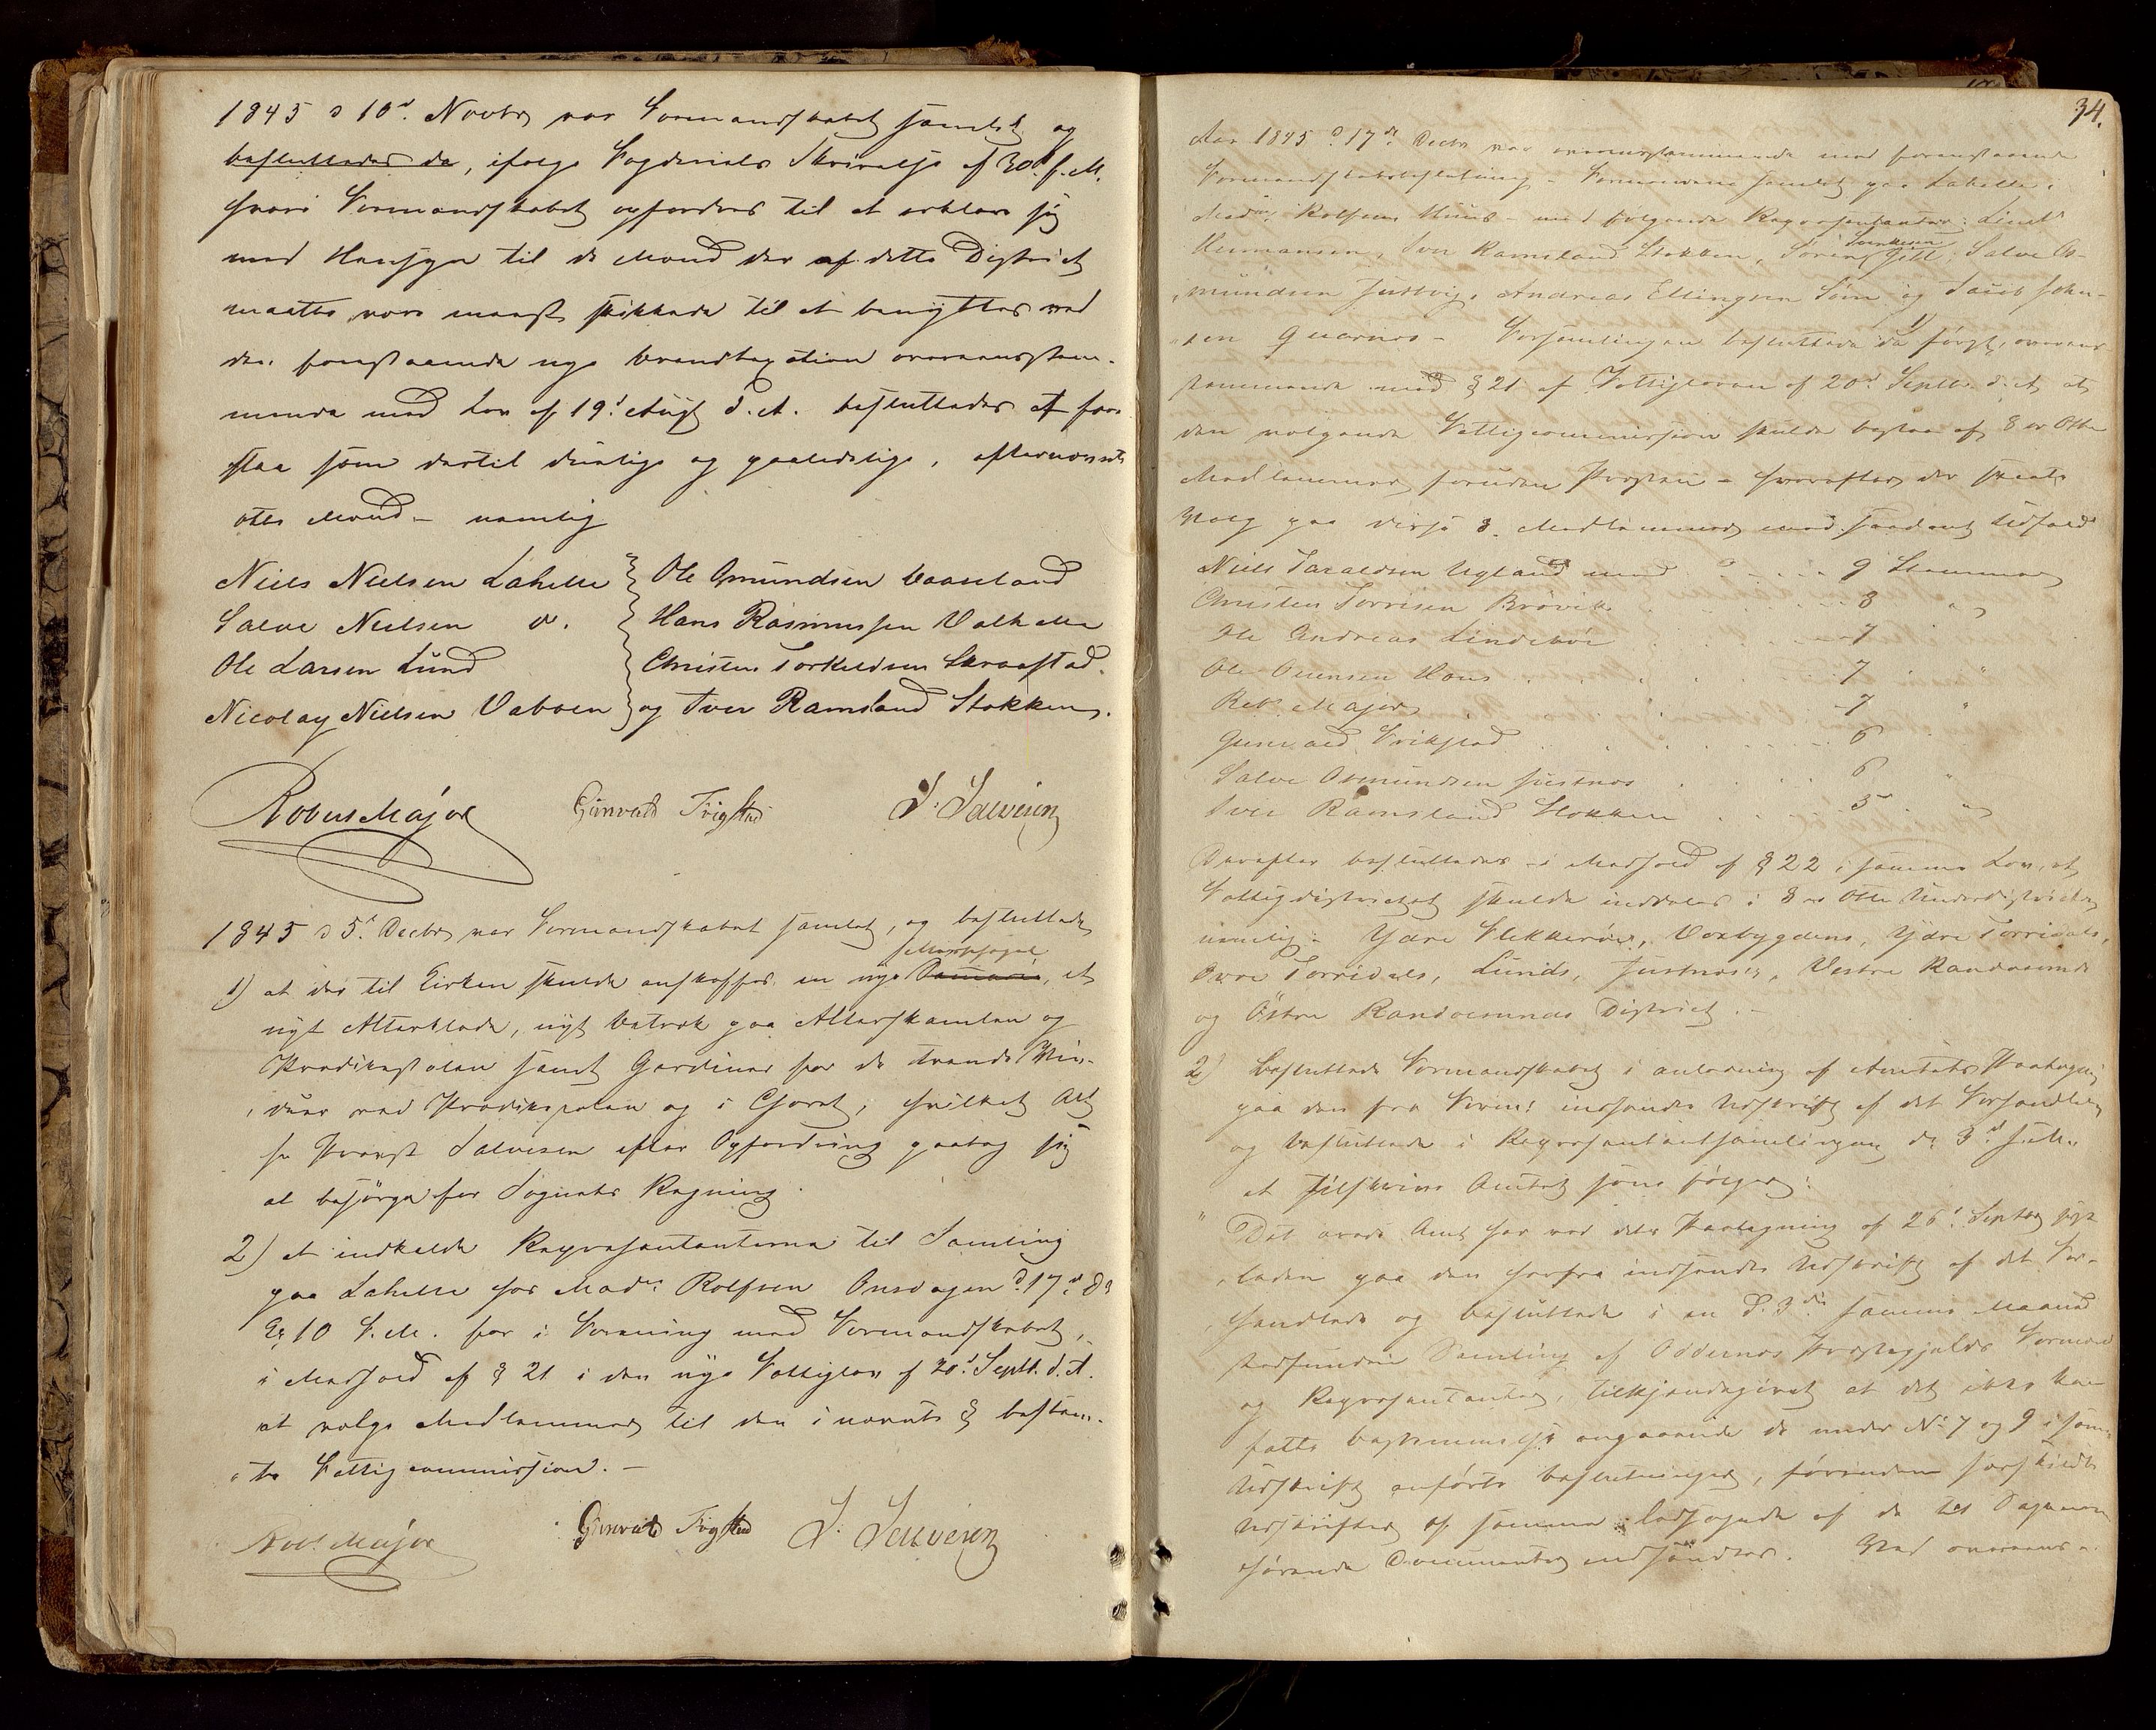 1845 d 10d. Novbr var Formandskabet samlet og
besluttedes da, ifølge Fogderiets Skrivelse af 30d. f. M.
hvori Formandskabet opfordres til at erklære sig
med Hensyn til de Mænd der af dette District
maatte være meest skikkede til at benyttes ved
den forestaaende nye Brandtaxation overeensstem-
mende med Lov af 19d. Augt d. A. besluttedes at fore
slaa som dertil duelige og paalidelige, efternævnte
otte Mænd – nemlig
Niels Nielsen Lahelle
Salve Nielsen do.
Ole Larsen Lund
Nicolay Nielsen Vaboen
Ole Gmundsen Baaseland
Hans Rasmussen Valhelle
Christen Torkildsen Straastad.
og Iver Ramsland Stokken.
Robert Major Gunvald Frigstad S. Salvesen
1845 d 5d. Decbr var Formandskabet samlet, og besluttede
Messehagel
1) at der til Kirken skulde anskaffes en nye, et
nyt Alterklæde, nyt Betræk paa Alterskamlen og
Prædikestolen samt Gardiner for de tvende Vin-
duer ved Prædikestolen og i Choret; hvilket Alt
hr Provst Salvesen efter Opfordring paatog sig
at besørge for Sognets Regning.
2) at indkalde Repræsentanterne til Samling
paa Lahelle hos Madme Rolfsen Onsdagen d. 17d ds
Kl 10 F. M. for i Forening med Formandskabet,
i Medhold af § 21 i den nye Fattiglov af 20d. Septb. d. A.
at vælge Medlemmer til den i nævnte § bestem-
te Fattigcommission. –
Robt. Major Gunvald Frigstad S. Salvesen
34.
Aar 1845 d. 17de Decbr var overensstemmende med foranstaaende
Formandskabsbeslutning – Formændene samlet paa Lahelle i
Madme Rolfsens Huus – med følgende Repræsentanter: Lieutt
Svenksen
Hermansen, Iver Ramsland Stokken, Søren Gill, Salve As-
mundsen Justvig, Andreas Ellingsen Søm og Jacob John-
sen Qvarnes – Forsamlingen besluttede da først, overens
stemmende med § 21 af Fattigloven af 20d Septbr d. A, at
den vælgende Fattigcommission skulde bestaae af 8 er Otte
Medlemmer foruden Præsten – hvorefter der skeete
Valg paa disse 8 Medlemmer med saadant Udfald
Niels Taraldsen Ugland med 9 Stemmer
Christen Torrisen Brøvik 8 "
Ole Andreas Lindebøe 7
Ole Ounsen Haus 7 "
Robt. Major 7 "
Gunvald Frikstad 6
Salve Osmundsen Justnes 6 "
Iver Ramsland Stokken 5 "
Derefter besluttedes i Medhold af § 22 i samme Lov, at
Fattigdistrictet skulde inddeles i 8 er Otte Underdistricter
nemlig: Ydre Flekkerøens, Voxbygdens, Ydre Torridals,
Øvre Torridals, Lunds, Justnes's, Vestre Randøsunds
og Østre Randøesunds District. –
2) Besluttede Formandskabet i anledning af Amtets Paategning
paa den fra Form. indsendte Udskrift af det Forhandlede
og besluttede i Repræsentantsamlingen d. 3d f. M.
at tilskrive Amtet som følger:
" Det ærede Amt har ved dets Paategning af 26d. Septbr sidst
leden paa den herfra indsendte Udskrift af det For-
handlede og besluttede i en d. 3die samme Maaned
stedfunden Samling af Oddernes Præstegjelds Formænd
og Repræsentanter, tilkjendegivet at det ikke kan
fatte bestemmelse angaaende de under No 7 og 9 i samme
Udskrift anførte beslutninger, førenden særskildte
Udskrifter af samme ledsagede af de til Sagerne
hørende Documenter indsendes. Ved overeens-